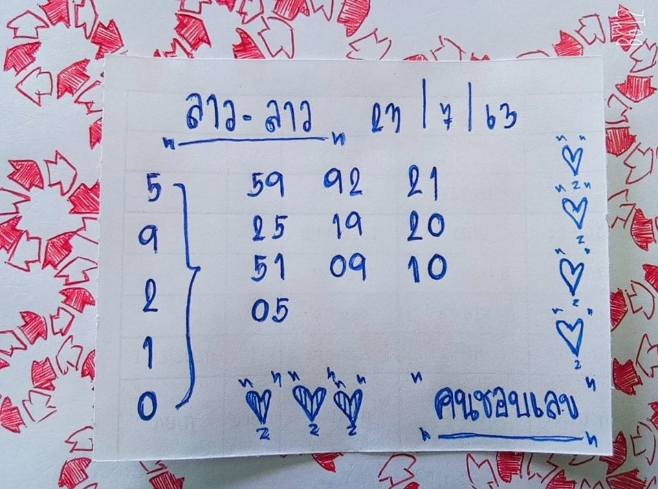 "ลาว-ลาว" 23/7/63
5
9
2
1
0
59 92 21
25 19 20
51 09 10
05
"คนชอบเลข"